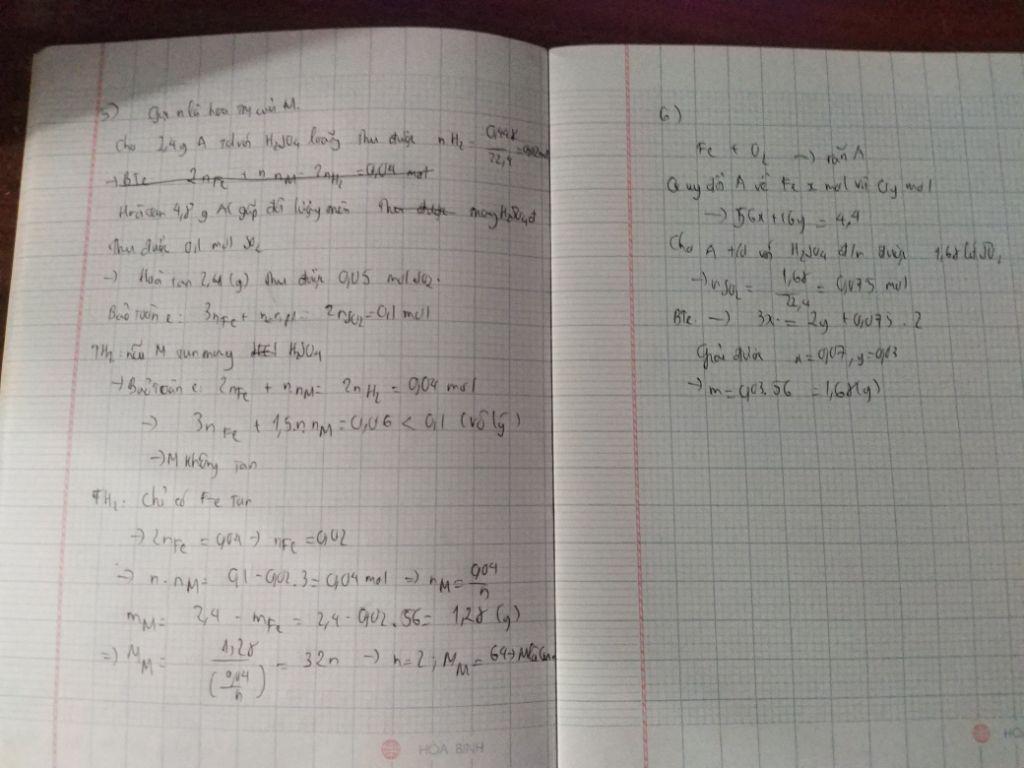 5) Gọi n là hóa trị của M.
Cho 2,4g A td với H₂SO₄ loãng thu được nH₂ = 0,448/22,4 = 0,02 mol
→ BTe 2nFe + n nM = 2nH₂ = 0,04 mol
Hoà tan 4,8 g A( gấp đôi lượng trên thu được trong H₂SO₄ đ
thu được 0,1 mol SO₂
→ Hoà tan 2,4 (g) thu được 0,05 mol SO₂.
Bảo toàn e: 3nFe + n.nM = 2nSO₂ = 0,1 mol
TH₁: nếu M tan trong H₂SO₄
→ Bảo toàn e: 2nFe + n nM = 2nH₂ = 0,04 mol
→ 3nFe + 1,5n.nM = 0,06 < 0,1 (vô lý)
→ M không tan
TH₂: Chỉ có Fe tan
→ 2nFe = 0,04 → nFe = 0,02
→ n.nM = 0,1 - 0,02.3 = 0,04 mol → nM = 0,04/n
mM = 2,4 - mFe = 2,4 - 0,02.56 = 1,28 (g)
=> MM = 1,28/(0,04/n) = 32n → n = 2; MM = 64 → M là
HÒA BÌNH
6)
Fe + O₂ → rắn A
Quy đổi A về Fe x mol và O y mol
→ 56x + 16y = 4,4
Cho A t/d với H₂SO₄ đ/n được 1,68 lít SO₂
→ nSO₂ = 1,68/22,4 = 0,075 mol
BTe → 3x = 2y + 0,075.2
Giải được x = 0,07, y = 0,03
→ m = 0,03.56 = 1,68 (g)
HÒ